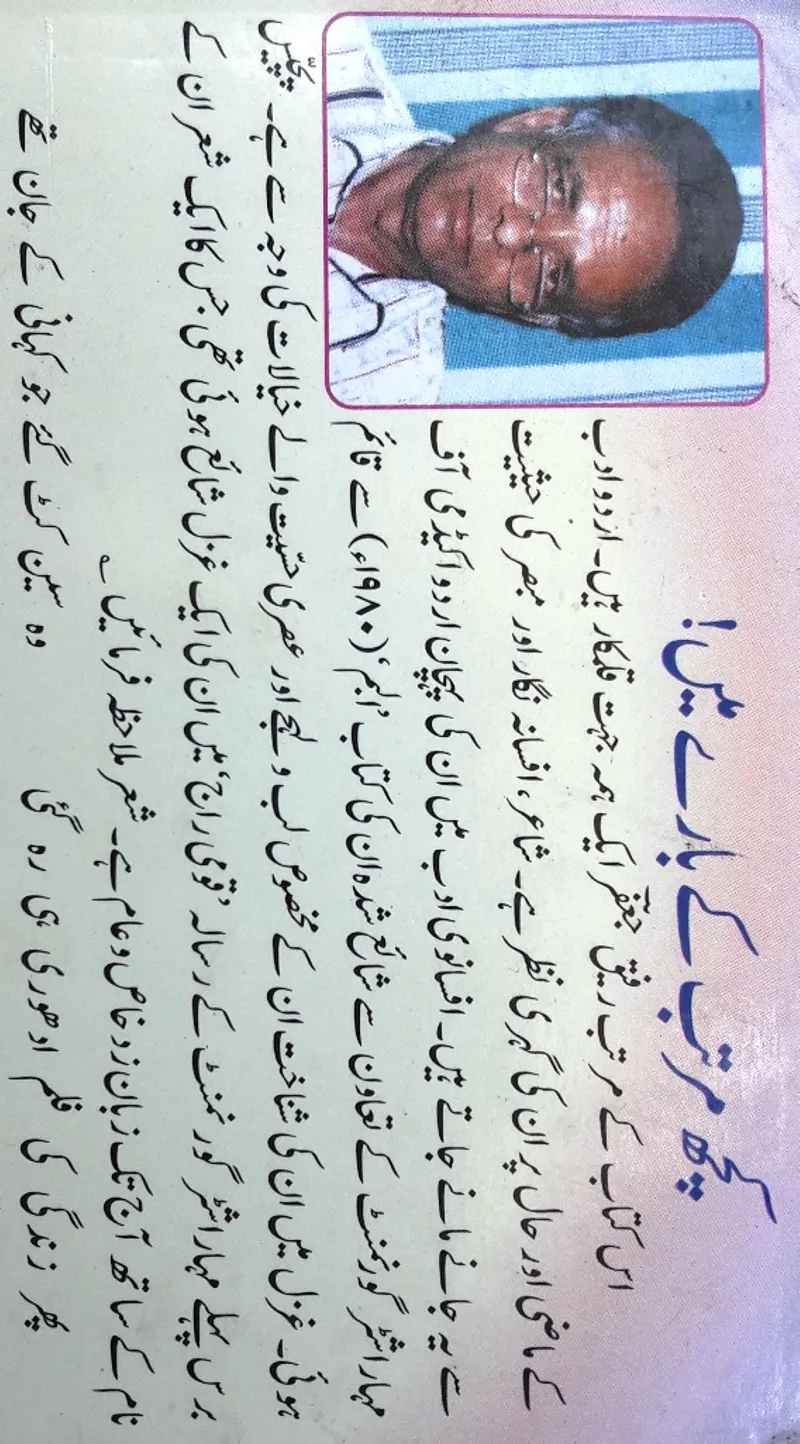 کچھ مرتب کے بارے میں!
اس کتاب کے مرتب رفیق جعفر ایک ہمہ جہت قلمکار ہیں۔ اردو ادب
کے ماضی اور حال پر ان کی گہری نظر ہے۔ شاعر، افسانہ نگار اور مبصر کی حیثیت
سے یہ جانے مانے جاتے ہیں۔ افسانوی ادب میں ان کی پہچان اردو اکیڈمی آف
مہاراشٹر گورنمنٹ کے تعاون سے شائع شدہ ان کی کتاب ’البم‘ (۱۹۸۰ء) سے قائم
ہوئی۔ غزل میں ان کی شناخت ان کے مخصوص لب و لہجے اور عصری حسّیت والے خیالات کی وجہ سے ہے۔ پچیّس
برس پہلے مہاراشٹر گورنمنٹ کے رسالہ ’قومی راج‘ میں ان کی ایک غزل شائع ہوئی تھی جس کا ایک شعر ان کے
نام کے ساتھ آج تک زبان زد خاص و عام ہے۔ شعر ملاحظہ فرمائیں ؎
پھر زندگی کی فلم ادھوری ہی رہ گئی وہ سین کٹ گئے جو کہانی کے جان تھے